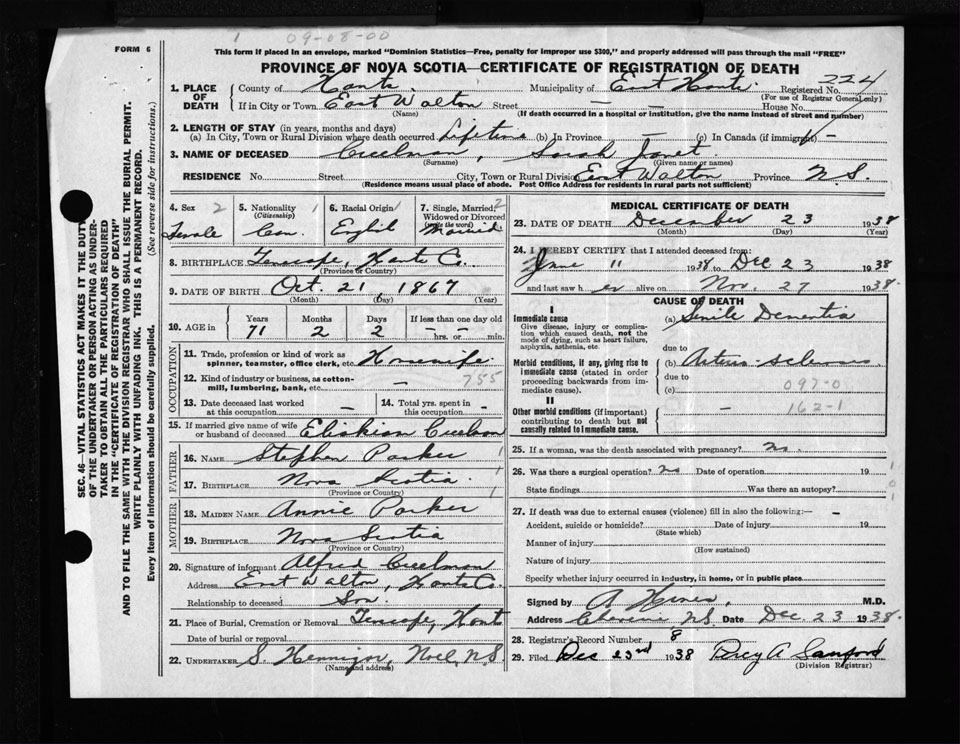 1 09-08-00
FORM 6
This form if placed in an envelope, marked "Dominion Statistics—Free, penalty for improper use $300," and properly addressed will pass through the mail "FREE"
PROVINCE OF NOVA SCOTIA—CERTIFICATE OF REGISTRATION OF DEATH
SEC. 46—VITAL STATISTICS ACT MAKES IT THE DUTY
OF THE UNDERTAKER OR PERSON ACTING AS UNDER-
TAKER TO OBTAIN ALL THE PARTICULARS REQUIRED
IN THE "CERTIFICATE OF REGISTRATION OF DEATH"
AND TO FILE THE SAME WITH THE DIVISION REGISTRAR WHO SHALL ISSUE THE BURIAL PERMIT.
WRITE PLAINLY WITH UNFADING INK. THIS IS A PERMANENT RECORD.
Every item of information should be carefully supplied. (See reverse side for instructions.)
1. PLACE OF DEATH County of Hants. Municipality of East Hants. Registered No. 224
(For use of Registrar General only)
If in City or Town East Walton Street — — House No.
(Name) (If death occurred in a hospital or institution, give the name instead of street and number)
2. LENGTH OF STAY (in years, months and days)
(a) In City, Town or Rural Division where death occurred Lifetime (b) In Province — (c) In Canada (if immigrant) —
3. NAME OF DECEASED Creelman, Sarah Janet.
(Surname) (Given name or names)
RESIDENCE No. Street City, Town or Rural Division East Walton Province N.S.
(Residence means usual place of abode. Post Office Address for residents in rural parts not sufficient)
4. Sex 2 Female
5. Nationality (Citizenship) 1 Can.
6. Racial Origin 1 English
7. Single, Married, Widowed or Divorced (write the word) 2 Married
8. BIRTHPLACE Tenecape, Hants Co.
(Province or Country)
9. DATE OF BIRTH Oct. 21, 1867
(Month) (Day) (Year)
10. AGE in Years 71 Months 2 Days 2 If less than one day — hrs. or — min.
OCCUPATION
11. Trade, profession or kind of work as spinner, teamster, office clerk, etc. Housewife.
12. Kind of industry or business, as cotton-mill, lumbering, bank, etc. — 755
13. Date deceased last worked at this occupation —
14. Total yrs. spent in this occupation —
15. If married give name of wife or husband of deceased Creelman
FATHER
16. NAME Stephen Parker 1
17. BIRTHPLACE Nova Scotia. 1
(Province or Country)
MOTHER
18. MAIDEN NAME Annie Parker
19. BIRTHPLACE Nova Scotia
(Province or Country)
20. Signature of informant Alfred Creelman
Address East Walton, Hants Co.
Relationship to deceased Son.
21. Place of Burial, Cremation or Removal Tenecape, Hants
Date of burial or removal
22. UNDERTAKER S. Hennigar, Noel, N.S.
(Name and address)
MEDICAL CERTIFICATE OF DEATH
23. DATE OF DEATH December 23 1938
(Month) (Day) (Year)
24. I HEREBY CERTIFY that I attended deceased from:
June 11 1938 to Dec 23 1938
and last saw her alive on Nov. 27 1938.
CAUSE OF DEATH
I
Immediate cause (a) Senile Dementia
Give disease, injury or complication which caused death, not the mode of dying, such as heart failure, asphyxia, asthenia, etc.
due to
Morbid conditions, if any, giving rise to immediate cause (stated in order proceeding backwards from immediate cause). (b) Arterio-sclerosis
due to
(c) 097-0
II
Other morbid conditions (if important) contributing to death but not causally related to immediate cause. — 162-1
25. If a woman, was the death associated with pregnancy? No.
26. Was there a surgical operation? No Date of operation 19
State findings Was there an autopsy?
27. If death was due to external causes (violence) fill in also the following:— —
Accident, suicide or homicide? Date of injury 19
(State which)
Manner of injury
(How sustained)
Nature of injury
Specify whether injury occurred in industry, in home, or in public place
Signed by M.D.
Address N.S. Date Dec. 23 1938.
28. Registrar's Record Number 8
29. Filed Dec 23rd 1938 Percy A Sanford
(Division Registrar)